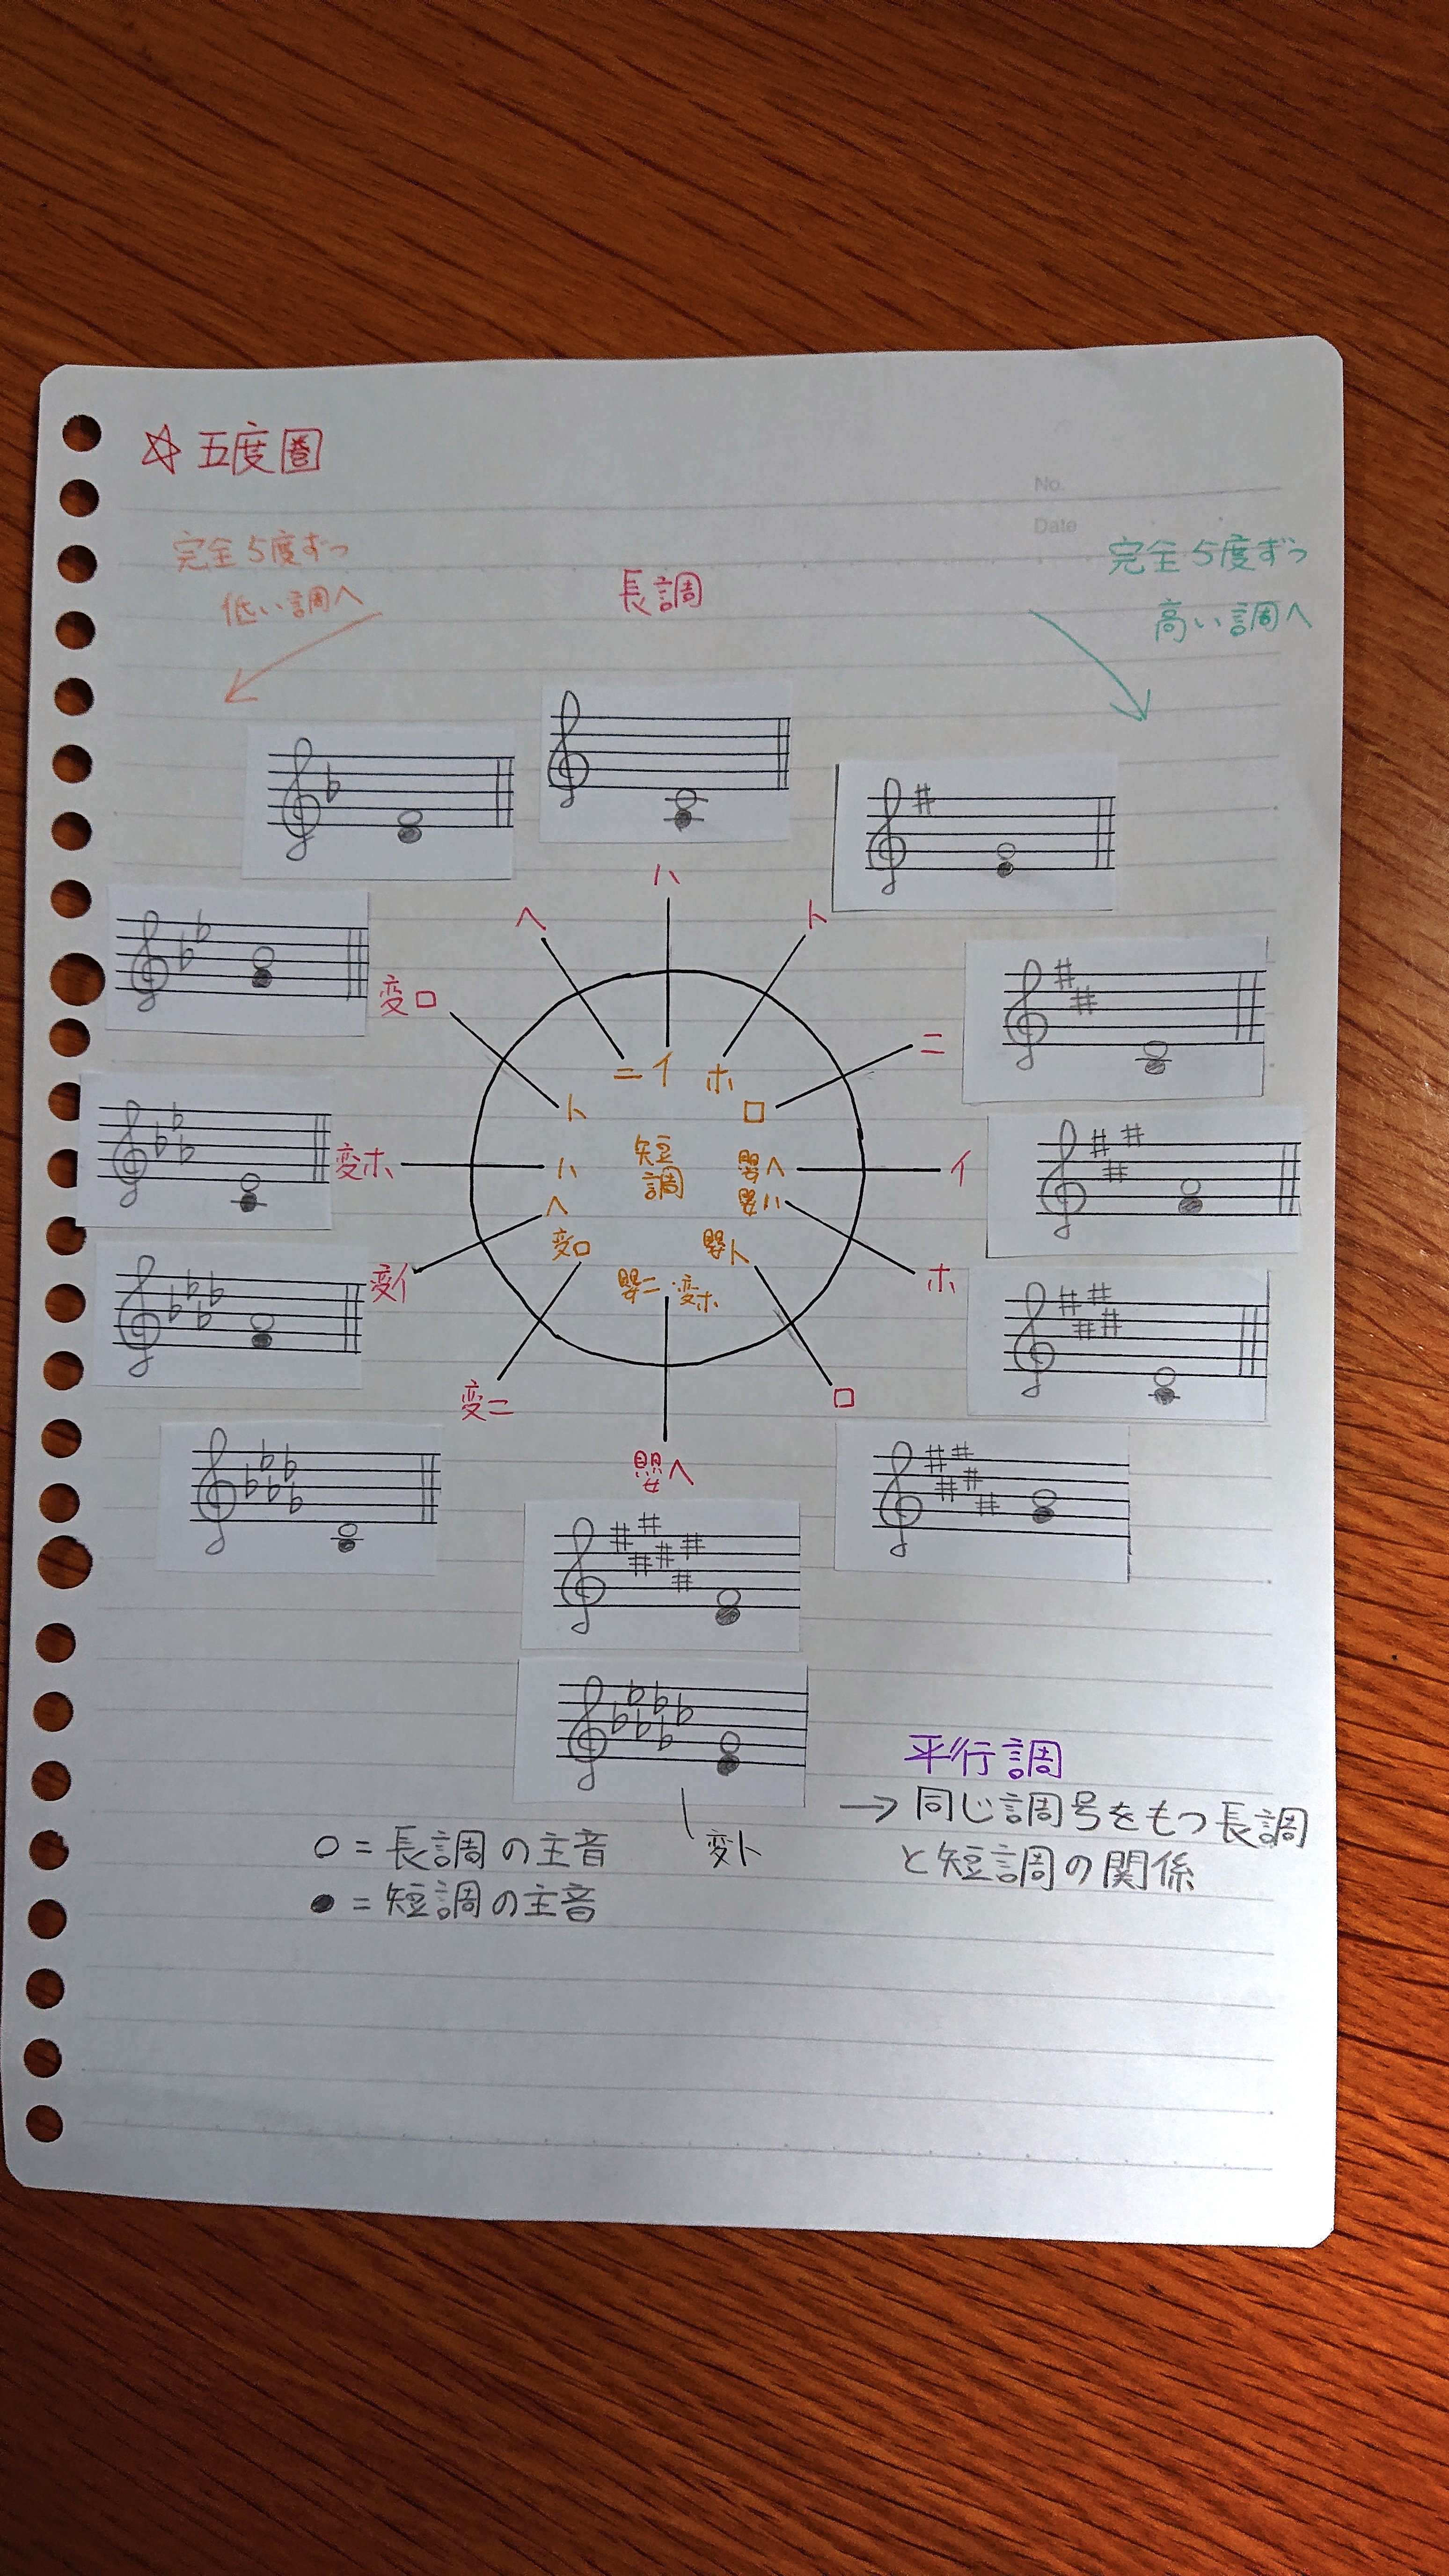 ☆ 五度圏
No.
Date
完全5度ずつ
低い調へ
完全5度ずつ
高い調へ
長調
ハ
ヘ
ト
変ロ
ニ
ニ
イ
ホ
ト
ロ
変ホ
ハ
短
調
嬰ヘ
イ
ヘ
嬰ハ
変イ
変ロ
嬰ト
ホ
嬰ニ・変ホ
変ニ
ロ
嬰ヘ
平行調
→ 同じ調号をもつ長調
と短調の関係
変ト
○ = 長調の主音
● = 短調の主音